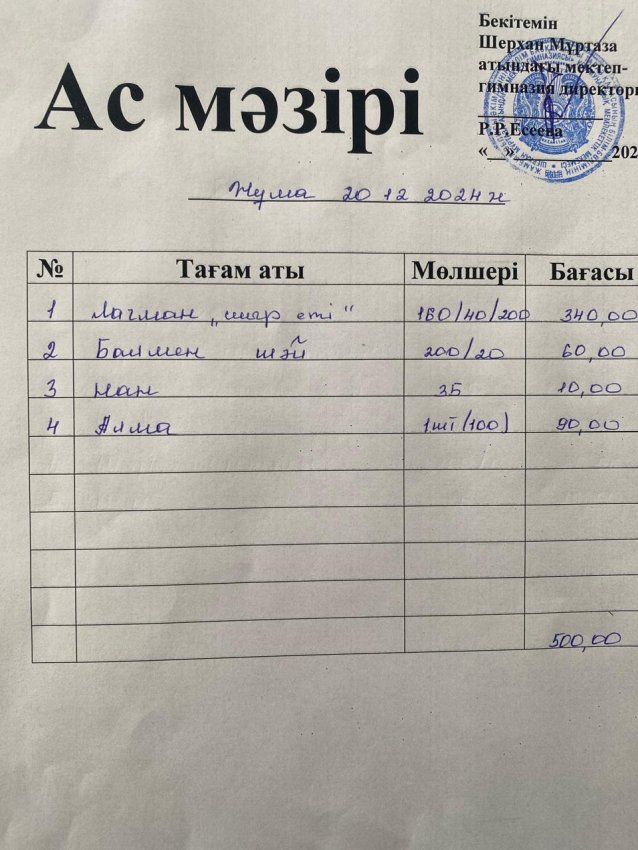 Бекітемін
Шерхан Мұртаза
атындағы мектеп-
гимназия директоры
Р.Р.Есеева
«__»____________202
Ас мәзірі
Жұма 20 12 2024 ж
№ Тағам аты Мөлшері Бағасы
1 Лагман „сиыр еті" 160/40/200 340,00
2 Балмен шәй 200/20 60,00
3 нан 35 10,00
4 Алма 1шт/100) 90,00
500,00